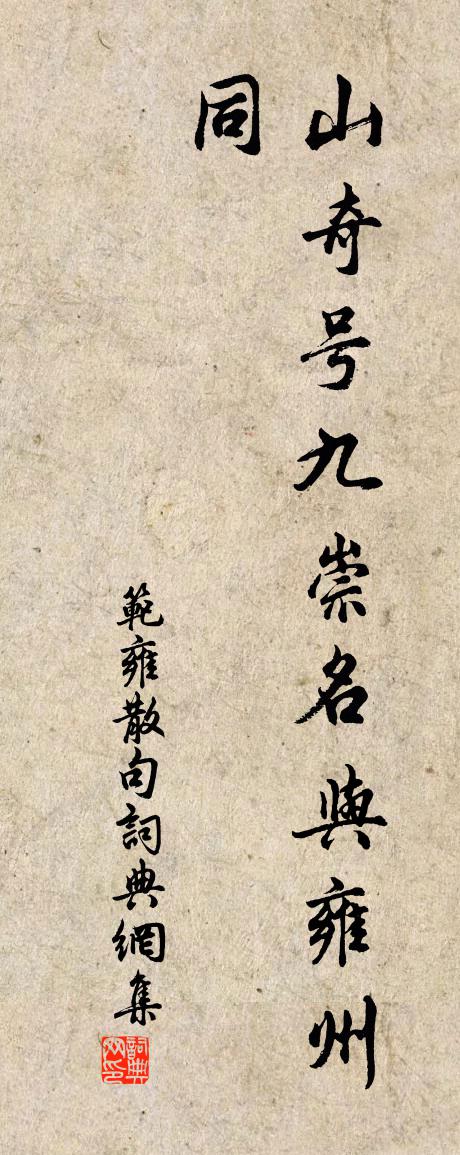 山奇号九崇名與雍州
同
範雍散句詞典網集
詞典网印